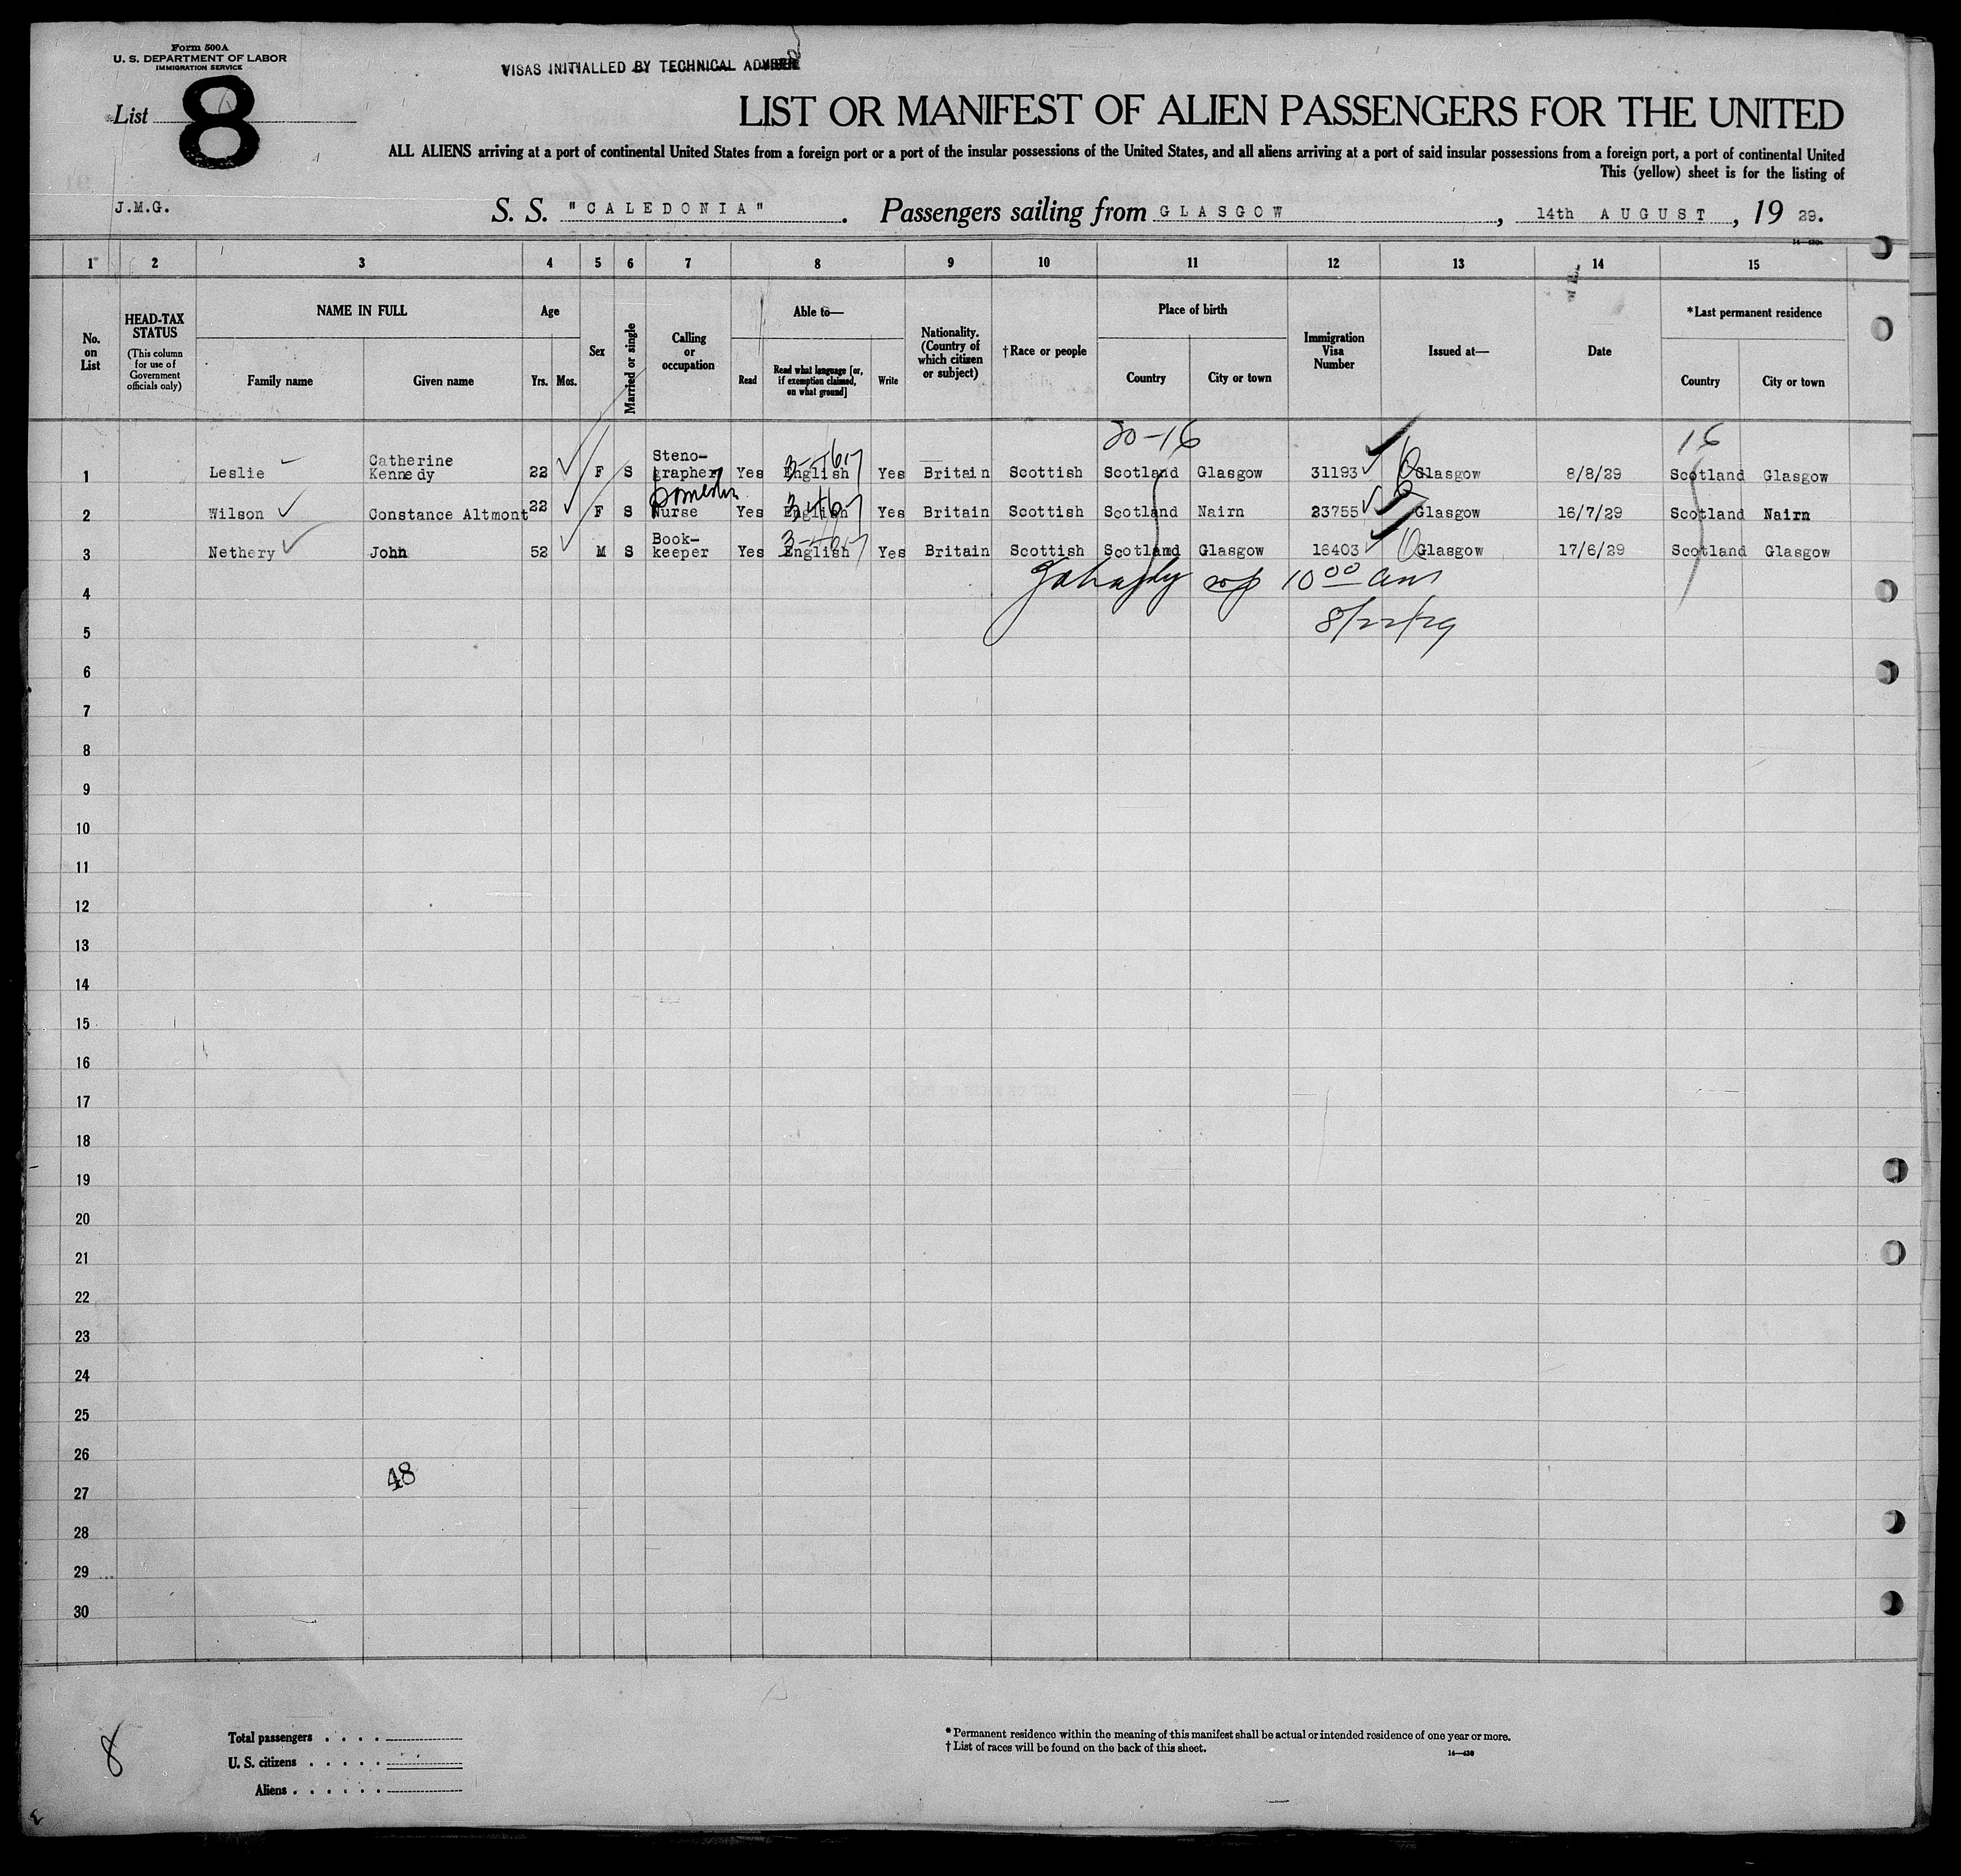 Form 500A
U. S. DEPARTMENT OF LABOR
IMMIGRATION SERVICE
VISAS INITIALLED BY TECHNICAL ADVISER
List 8
LIST OR MANIFEST OF ALIEN PASSENGERS FOR THE UNITED
ALL ALIENS arriving at a port of continental United States from a foreign port or a port of the insular possessions of the United States, and all aliens arriving at a port of said insular possessions from a foreign port, a port of continental United
This (yellow) sheet is for the listing of
J.M.G. S. S. "CALEDONIA". Passengers sailing from GLASGOW, 14th AUGUST, 19 29.
1 2 3 4 5 6 7 8 9 10 11 12 13 14 15
No. on List
HEAD-TAX STATUS
(This column for use of Government officials only)
NAME IN FULL
Family name Given name
Age
Yrs. Mos.
Sex
Married or single
Calling or occupation
Able to—
Read
Read what language [or, if exemption claimed, on what ground]
Write
Nationality. (Country of which citizen or subject)
†Race or people
Place of birth
Country City or town
Immigration Visa Number
Issued at—
Date
*Last permanent residence
Country City or town
20-16 16
1 Leslie Catherine Kennedy 22 F S Steno-grapher Yes English Yes Britain Scottish Scotland Glasgow 31193 Glasgow 8/8/29 Scotland Glasgow
Domestic
2 Wilson Constance Altmont 22 F S Nurse Yes English Yes Britain Scottish Scotland Nairn 23755 Glasgow 16/7/29 Scotland Nairn
3 Nethery John 52 M S Book-keeper Yes English Yes Britain Scottish Scotland Glasgow 16403 Glasgow 17/6/29 Scotland Glasgow
4 10 00 am
5 8/22/29
6
7
8
9
10
11
12
13
14
15
16
17
18
19
20
21
22
23
24
25
26
48
27
28
29
30
8
Total passengers . . . .
U. S. citizens . . . . .
Aliens . . . . . .
* Permanent residence within the meaning of this manifest shall be actual or intended residence of one year or more.
† List of races will be found on the back of this sheet.
14—430